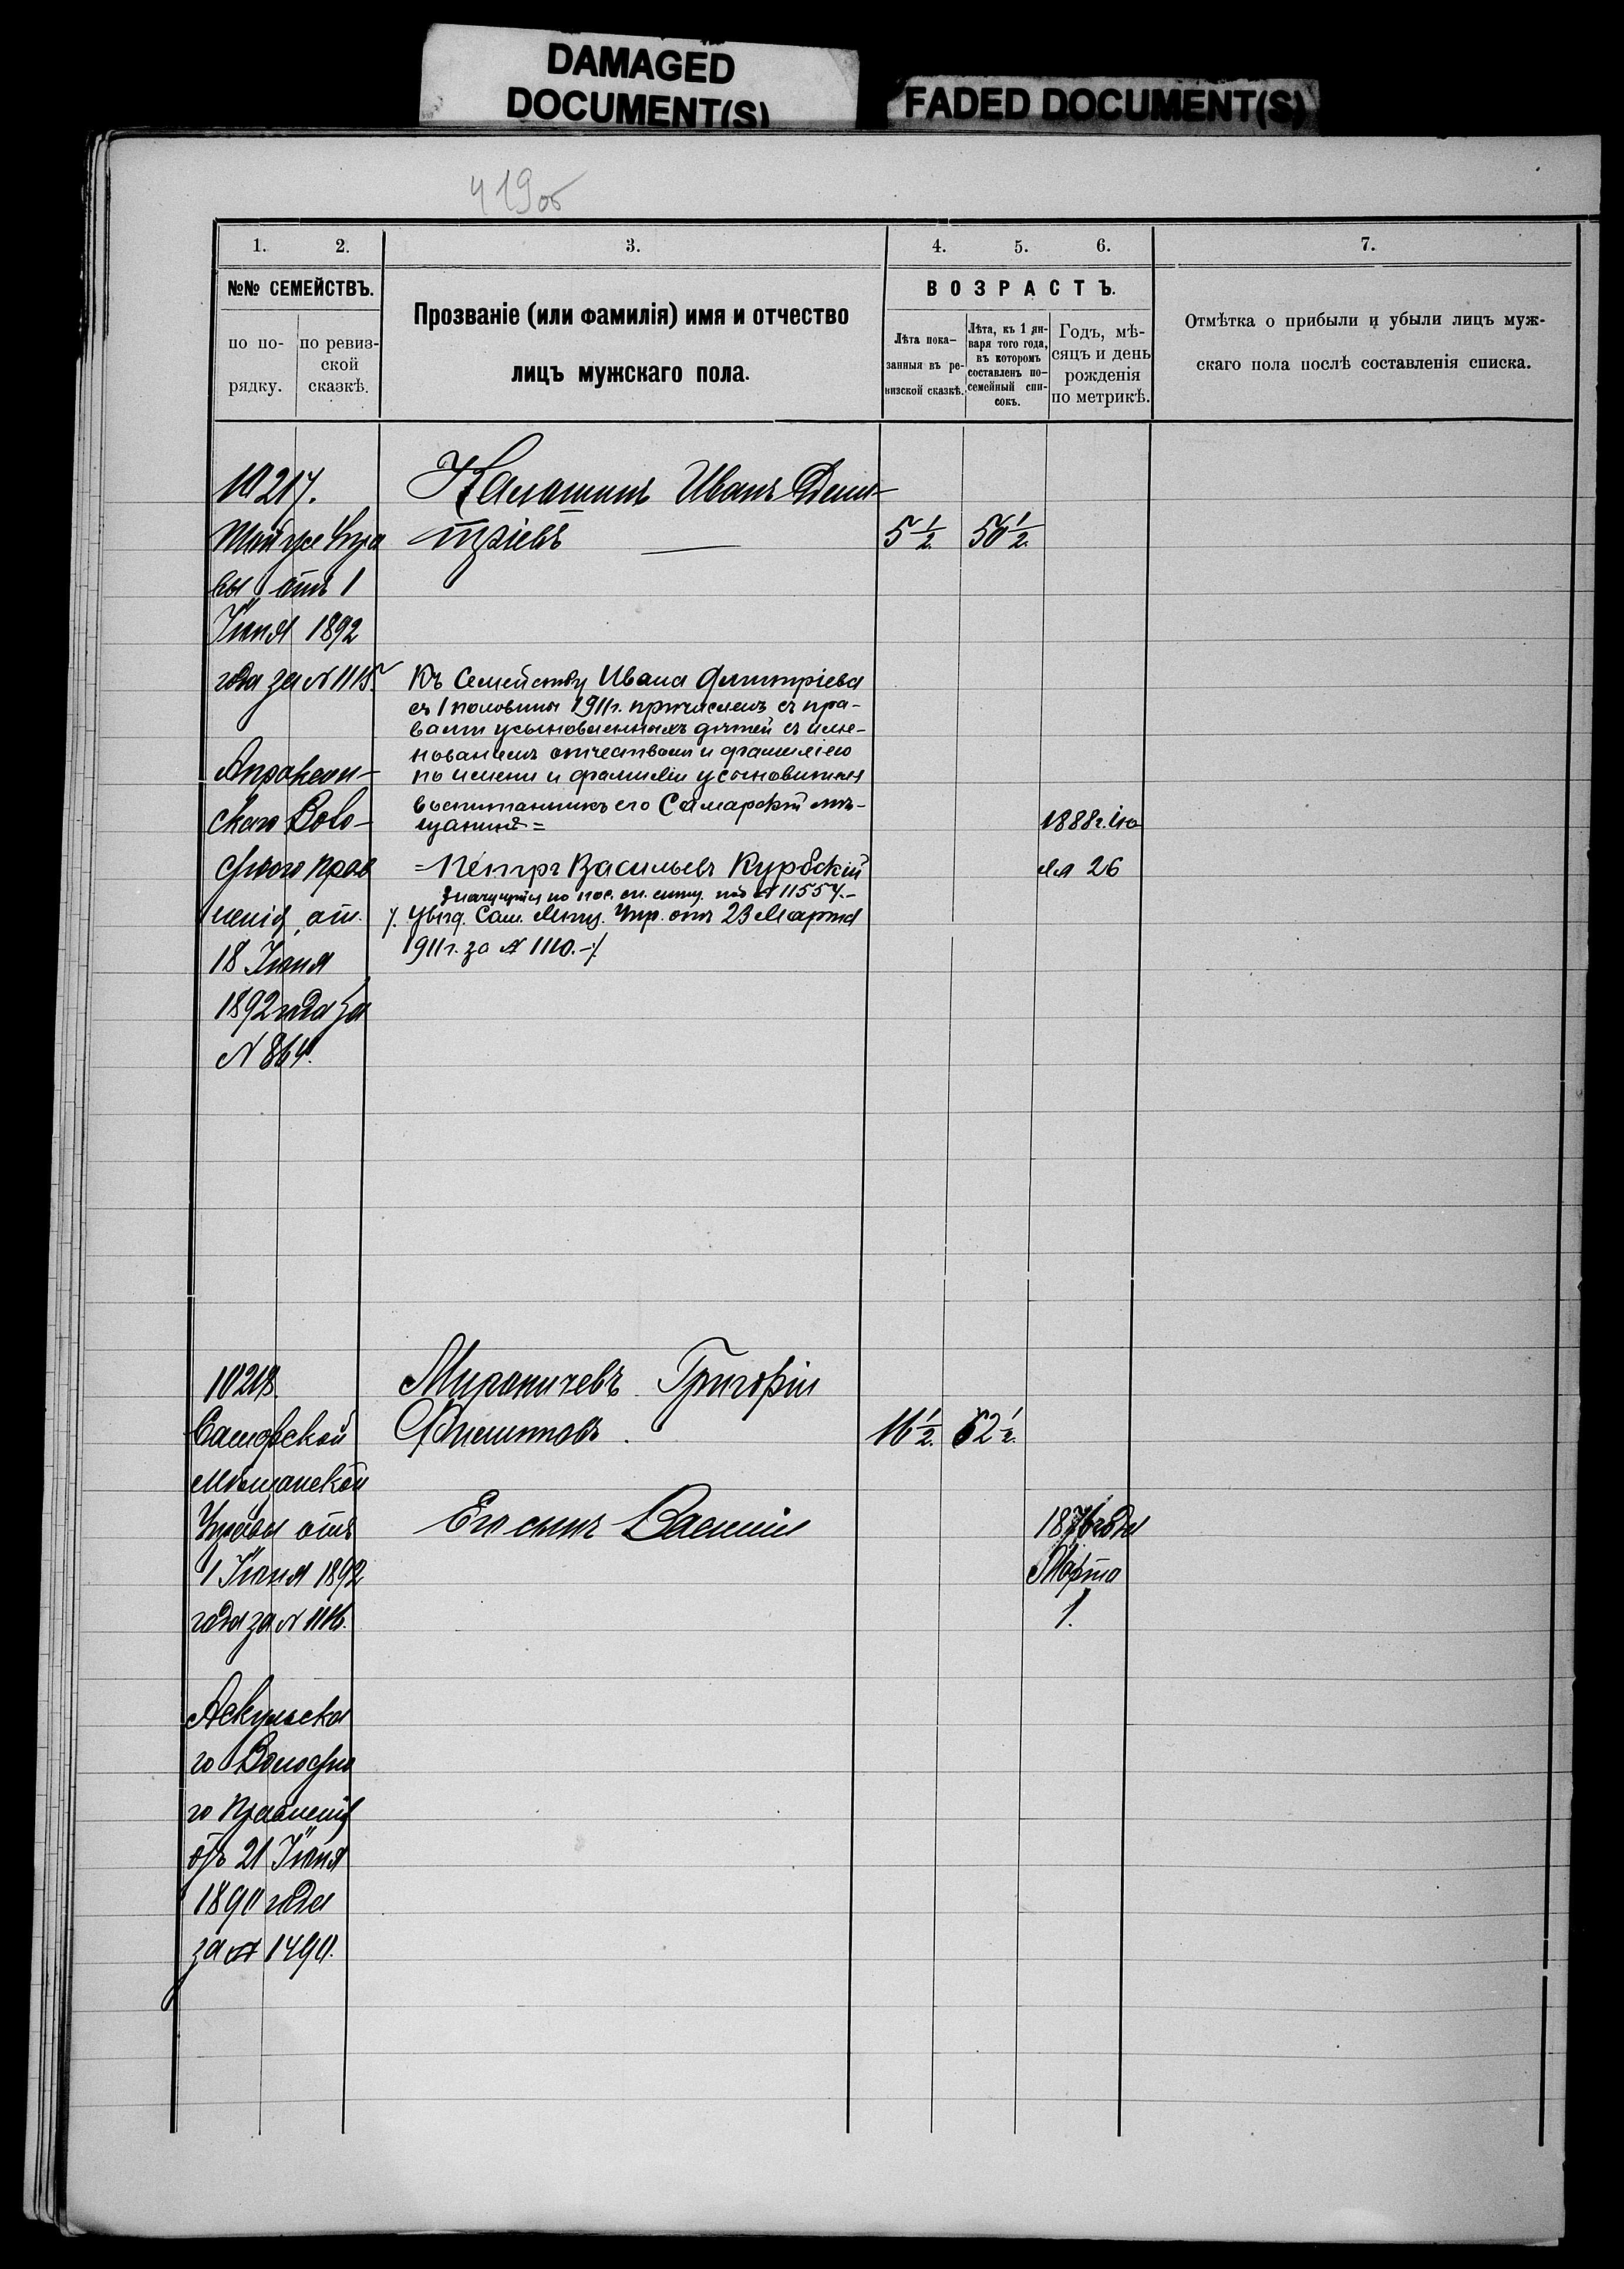 DAMAGED
DOCUMENT(S)
FADED DOCUMENT(S)
419об
1. 2. 3. 4. 5. 6. 7.
№№ СЕМЕЙСТВЪ.
по по-
рядку.
по ревиз-
ской
сказкѣ.
Прозваніе (или фамилія) имя и отчество
лицъ мужскаго пола.
ВОЗРАСТЪ.
Лѣта пока-
занныя въ ре-
визской сказкѣ.
Лѣта, къ 1 ян-
варя того года,
въ которомъ
составленъ по-
семейный спи-
сокъ.
Годъ, мѣ-
сяцъ и день
рожденія
по метрикѣ.
Отмѣтка о прибыли и убыли лицъ муж-
скаго пола послѣ составленія списка.
10217.
Той же Упра
вы отъ 1
Іюня 1892
года за № 1115.
Воло-
стного прав
ленія от.
18 Іюня
1892 года за
№ 864.
Калашинъ Иванъ Дими-
тріевъ
5 1/2. 50 1/2.
Къ Семейству Ивана Димитріева
съ 1 половины 1911г. причисленъ съ пра-
вами усыновленныхъ дѣтей съ име-
нованіемъ отчествомъ и фамиліею
по имени и фамиліи усыновителя
воспитанникъ его Самарскій мѣ-
щанинъ =
= Петръ Васильевъ Курбскій
значущійся по пос. сп. мѣщ. под № 11557.-
/. Увѣд. Сам. Мѣщ. Упр. отъ 23 Марта
1911г. за № 1110.-/.
1888г. Ію
ля 26
10218
Самарской
Мѣщанской
Управы отъ
1 Іюня 1892
года за № 1116.
Аскульска
го Волостно
го Правленія
отъ 21 Іюня
1890 года
за № 1490.
Мироничевъ Григорій
Филиповъ.
16 1/2. 62 1/2.
Его сынъ Василій
1876 года
Марта
1.